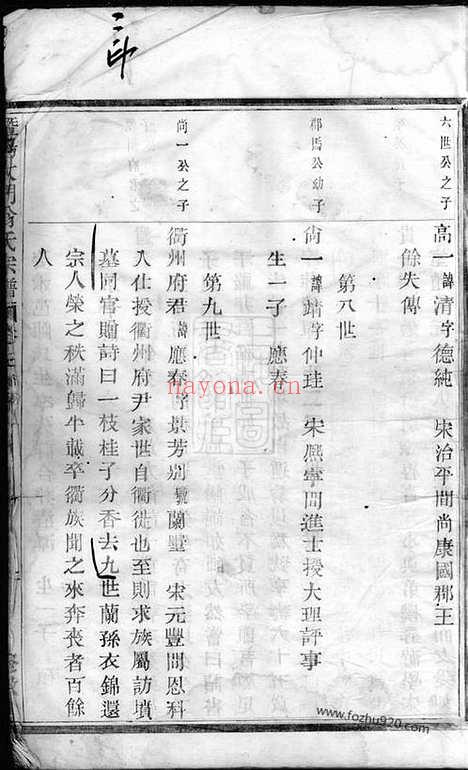 二
印
六世公之子
高一諱清字德純 宋治平間尚康國郡王
餘失傳
第八世
郡馬公幼子
尚一諱靖字仲珪 宋熙寧間進士授大理評事
生一子 應春
第九世
尚一公之子
衢州府君諱應春字景芳別號蘭墅 宋元豐間恩科
入仕授衢州府尹家世自衢徙也至則求族屬訪墳
墓同官贈詩曰一枝桂子分香去九世蘭孫衣錦還
宗人榮之秩滿歸半載卒衢族聞之來奔喪者百餘
人
氏宗譜
nayona.cn
www.fozhu920.com